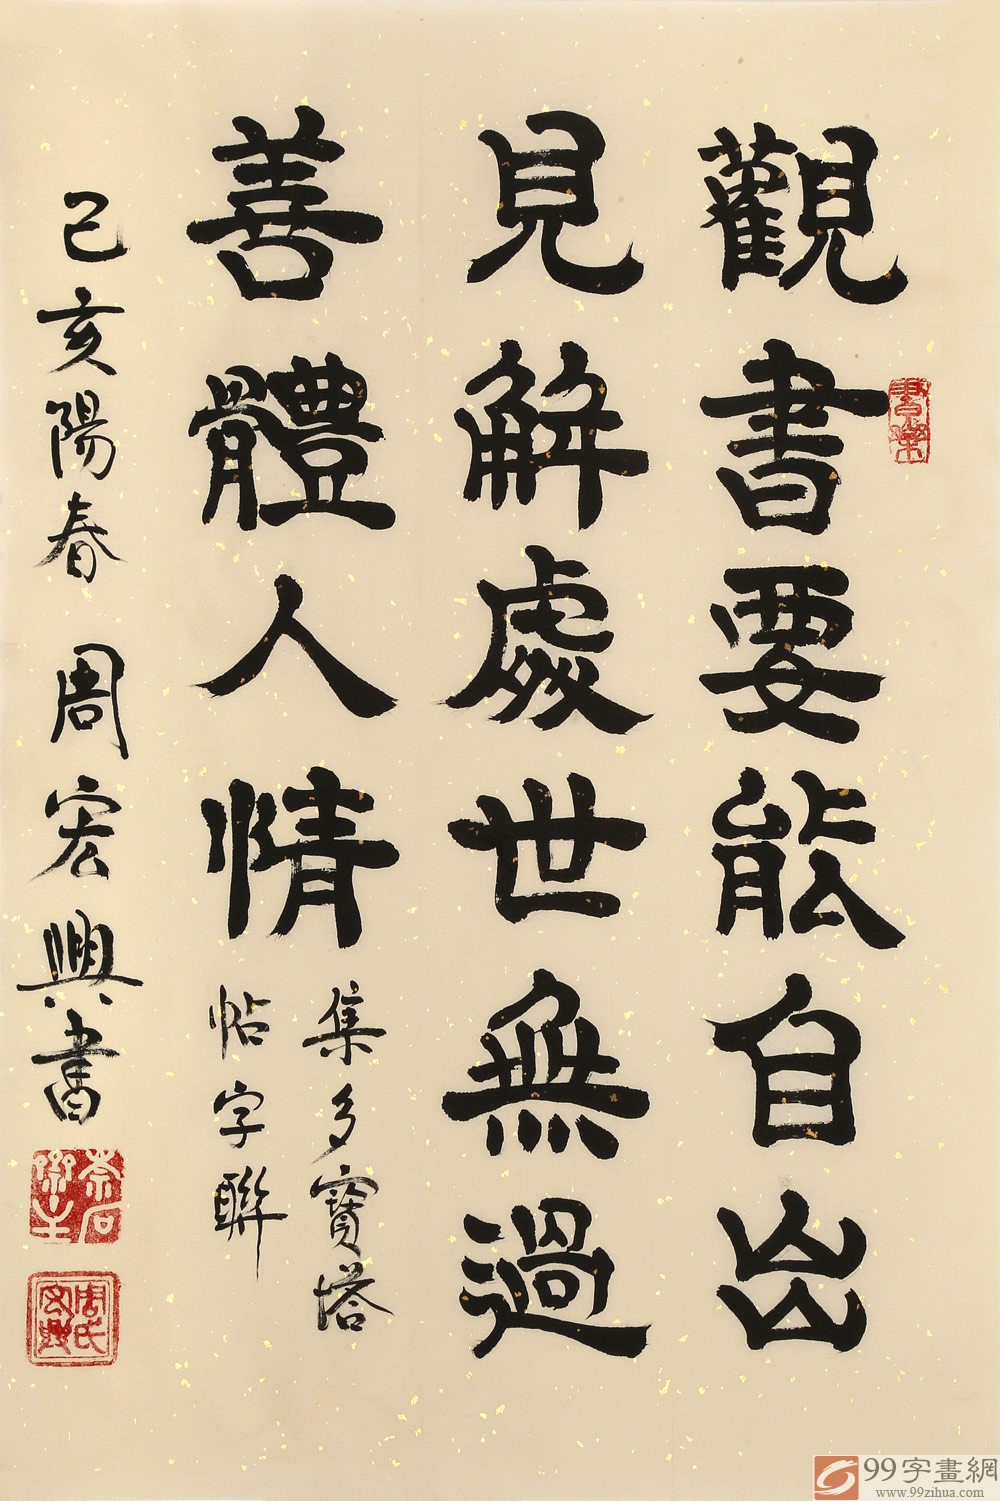 觀書要能自出
見解處世無過
善體人情
集多寶塔
帖字聯
己亥陽春 周宏興書
99字畫網
www.99zihua.com